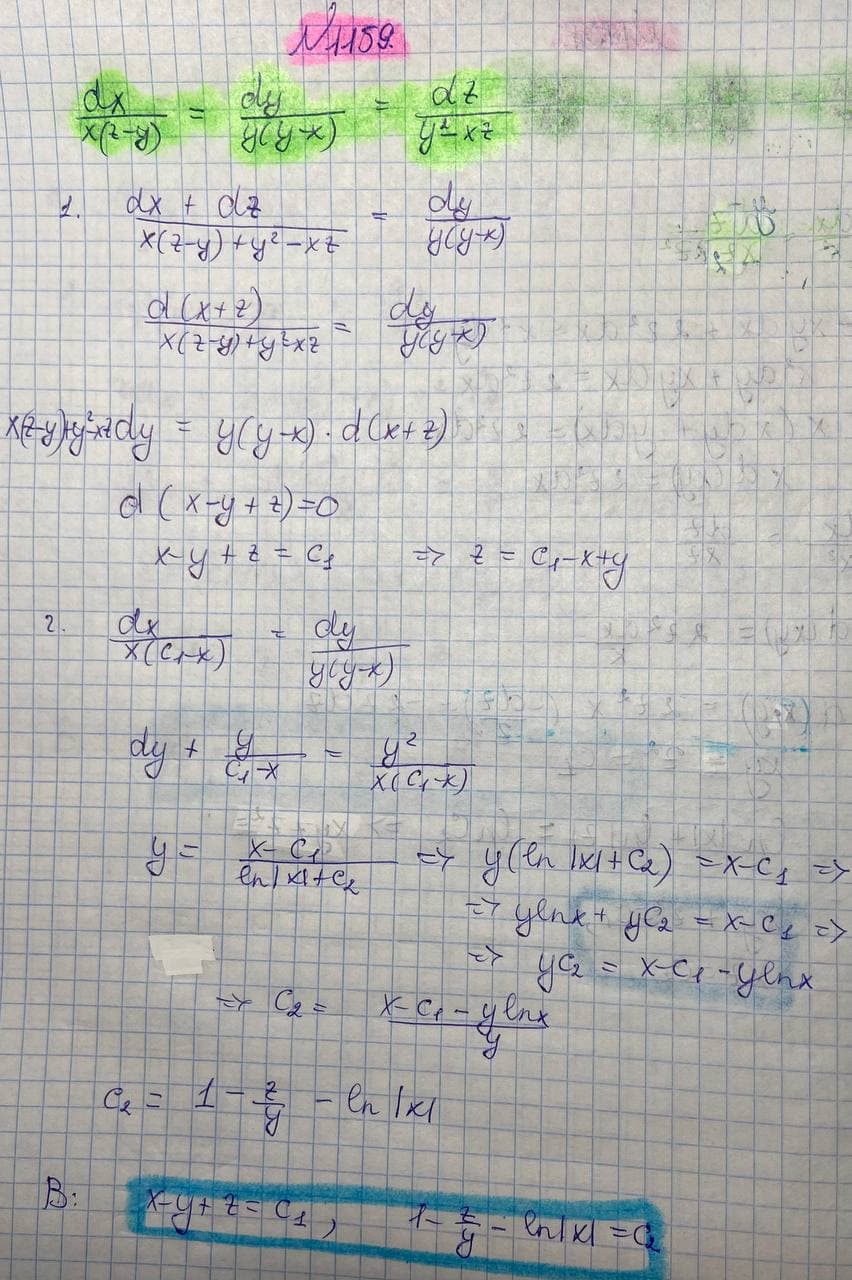 №1159.
dx/x(z-y) = dy/y(y-x) = dz/y²-xz
1. dx + dz/x(z-y)+y²-xz = dy/y(y-x)
d(x+z)/x(z-y)+y²xz = dy/y(y-x)
x(z-y)+y²-xz dy = y(y-x)·d(x+z)
d(x-y+z)=0
x-y+z = c₁ => z = c₁-x+y
2. dx/x(c₁-x) = dy/y(y-x)
dy + y/c₁-x = y²/x(c₁-x)
y = x-c₁/ln|x|+c₂ => y(ln|x|+c₂) = x-c₁ =>
=> ylnx + yc₂ = x-c₁ =>
=> yc₂ = x-c₁-ylnx
=> c₂ = x-c₁-ylnx/y
c₂ = 1 - z/y - ln|x|
В: x-y+z=c₁, 1-z/y-ln|x|=c₂